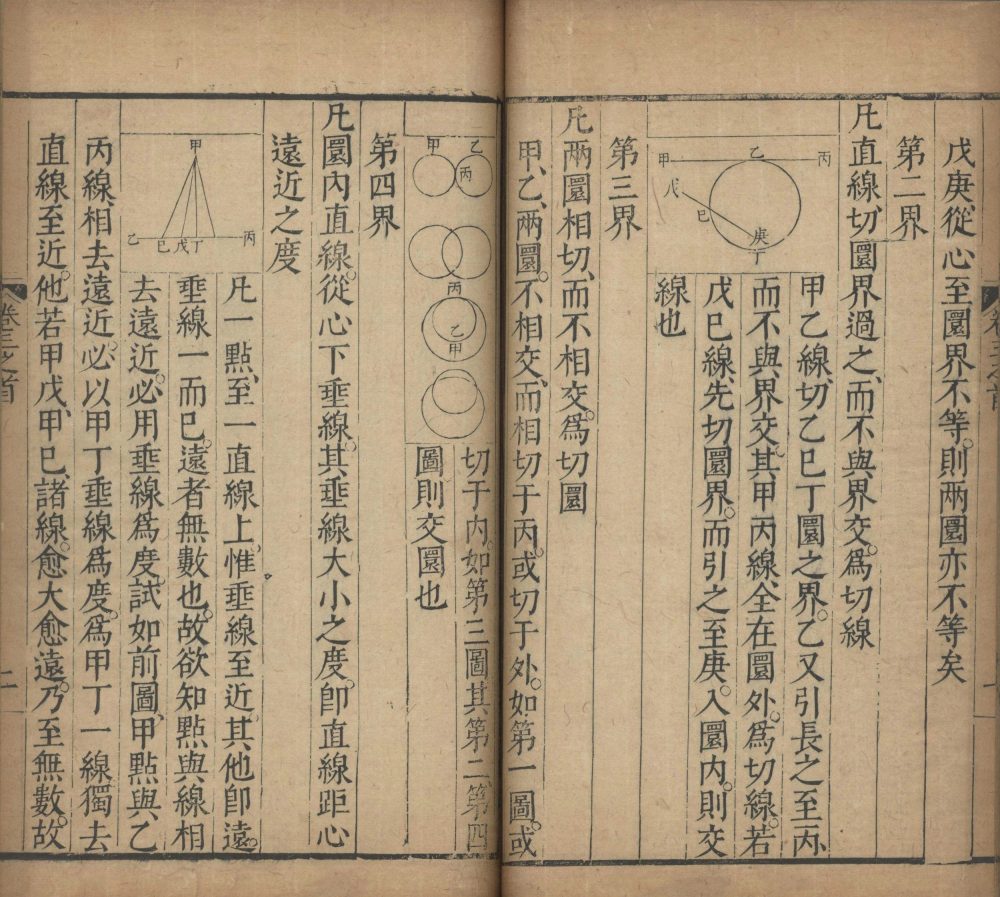 戊庚從心至圜界不等。則兩圜亦不等矣
第二界
凡直線、切圜界過之、而不與界交。爲切線
甲乙線、切乙己丁圜之界。乙又引長之至丙、
而不與界交。其甲丙線、全在圜外。爲切線。若
戊己線、先切圜界。而引之至庚。入圜內。則交
線也
甲
乙
丙
戊
己
庚
丁
第三界
凡兩圜相切、而不相交。爲切圜
甲、乙、兩圜。不相交、而相切于丙。或切于外。如第一圖。或
切于內。如第三圖其第二、第四
圖則交圜也
甲
乙
丙
丙
乙
甲
第四界
凡圜內直線。從心下垂線。其垂線大小之度。卽直線距心
遠近之度
凡一點、至一直線上。惟垂線至近。其他卽遠。
垂線一而已。遠者無數也。故欲知點與線相
去遠近。必用垂線爲度。試如前圖、甲點與乙
丙線、相去遠近。必以甲丁垂線爲度。爲甲丁一線獨去
直線至近。他若甲戊、甲己諸線。愈大愈遠。乃至無數。故
甲
乙
己
戊
丁
丙
卷三之首
二